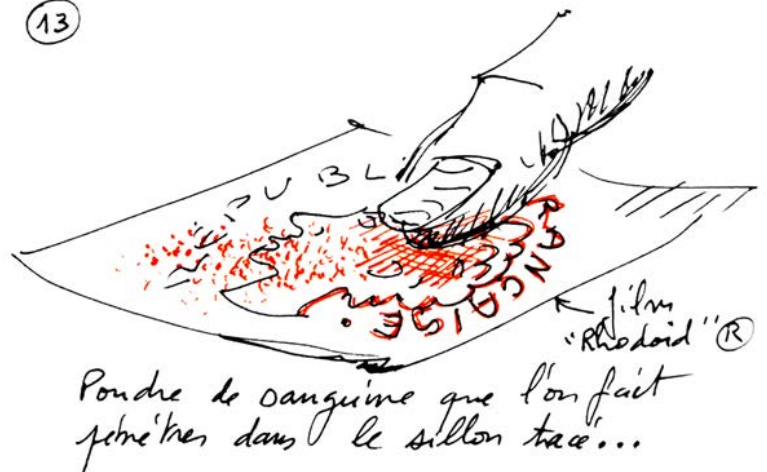 13
UBL
RANÇAISE.
film
"Rhodoïd" ®
Poudre de sanguine que l'on fait
pénétrer dans le sillon tracé...